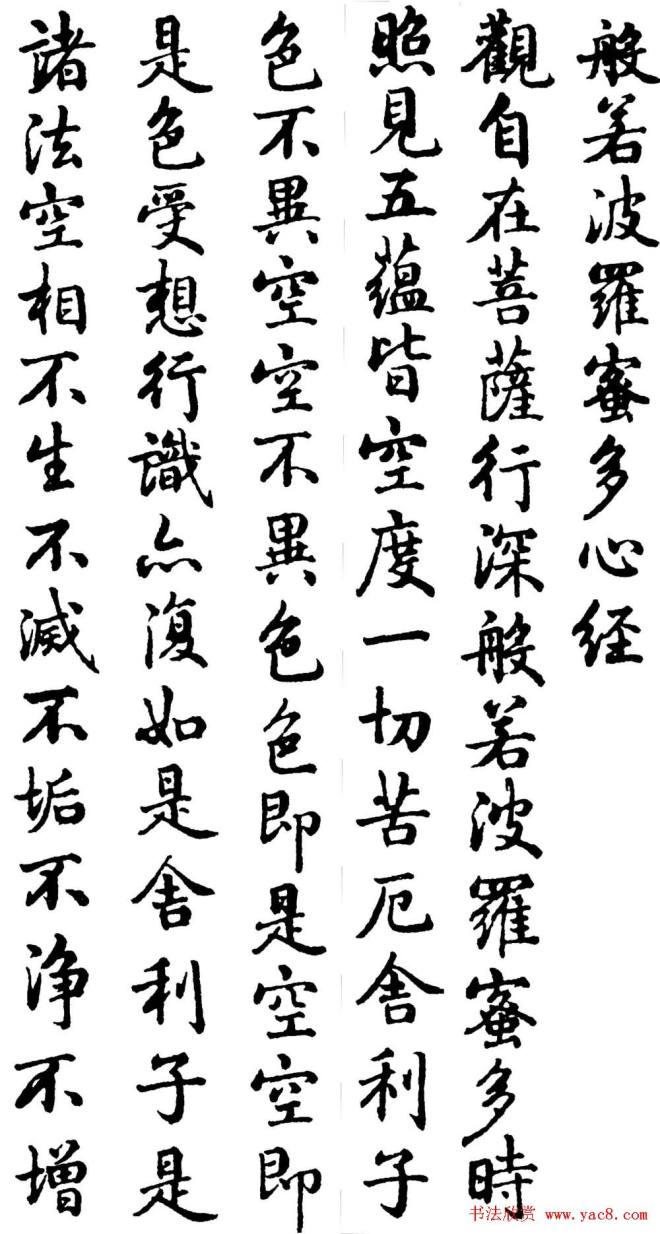 般若波羅蜜多心经
觀自在菩薩行深般若波羅蜜多時
照見五蘊皆空度一切苦厄舍利子
色不異空空不異色色即是空空即
是色受想行識亦復如是舍利子是
諸法空相不生不滅不垢不净不增
书法欣赏 www.yac8.com